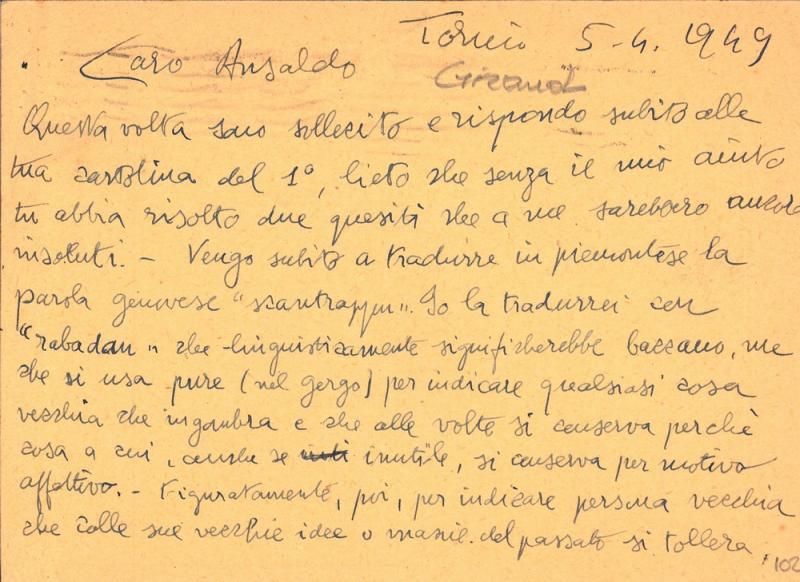 Torino 5-4. 1949
Caro Ansaldo
Questa volta sono sollecito e rispondo subito alla
tua cartolina del 1°, lieto che senza il mio aiuto
tu abbia risolto due quesiti che a me sarebbero ancora
insoluti. - Vengo subito a tradurre in piemontese la
parola genovese "scantrappu". Io la tradurrei con
"rabadan" che linguisticamente significherebbe baccano, ma
che si usa pure (nel gergo) per indicare qualsiasi cosa
vecchia che ingombra e che alle volte si conserva perchè
cosa a cui, anche se inutile, si conserva per motivo
affettivo. - Figuratamente, poi, per indicare persona vecchia
che colle sue vecchie idee o manie del passato si tollera.
102